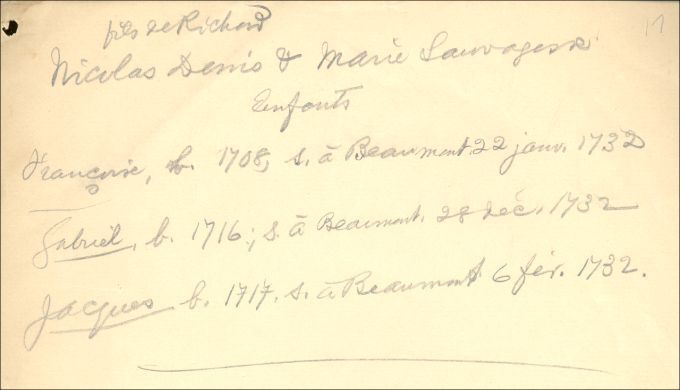 fils de Richard
17
Nicolas Denis & Marie Sauvagesse
Enfants
Françoise, b. 1708, s. à Beaumont 22 janv. 1732
Gabriel, b. 1716; s. à Beaumont. 28 déc. 1732
Jacques b. 1717. s. à Beaumont 6 fév. 1732.